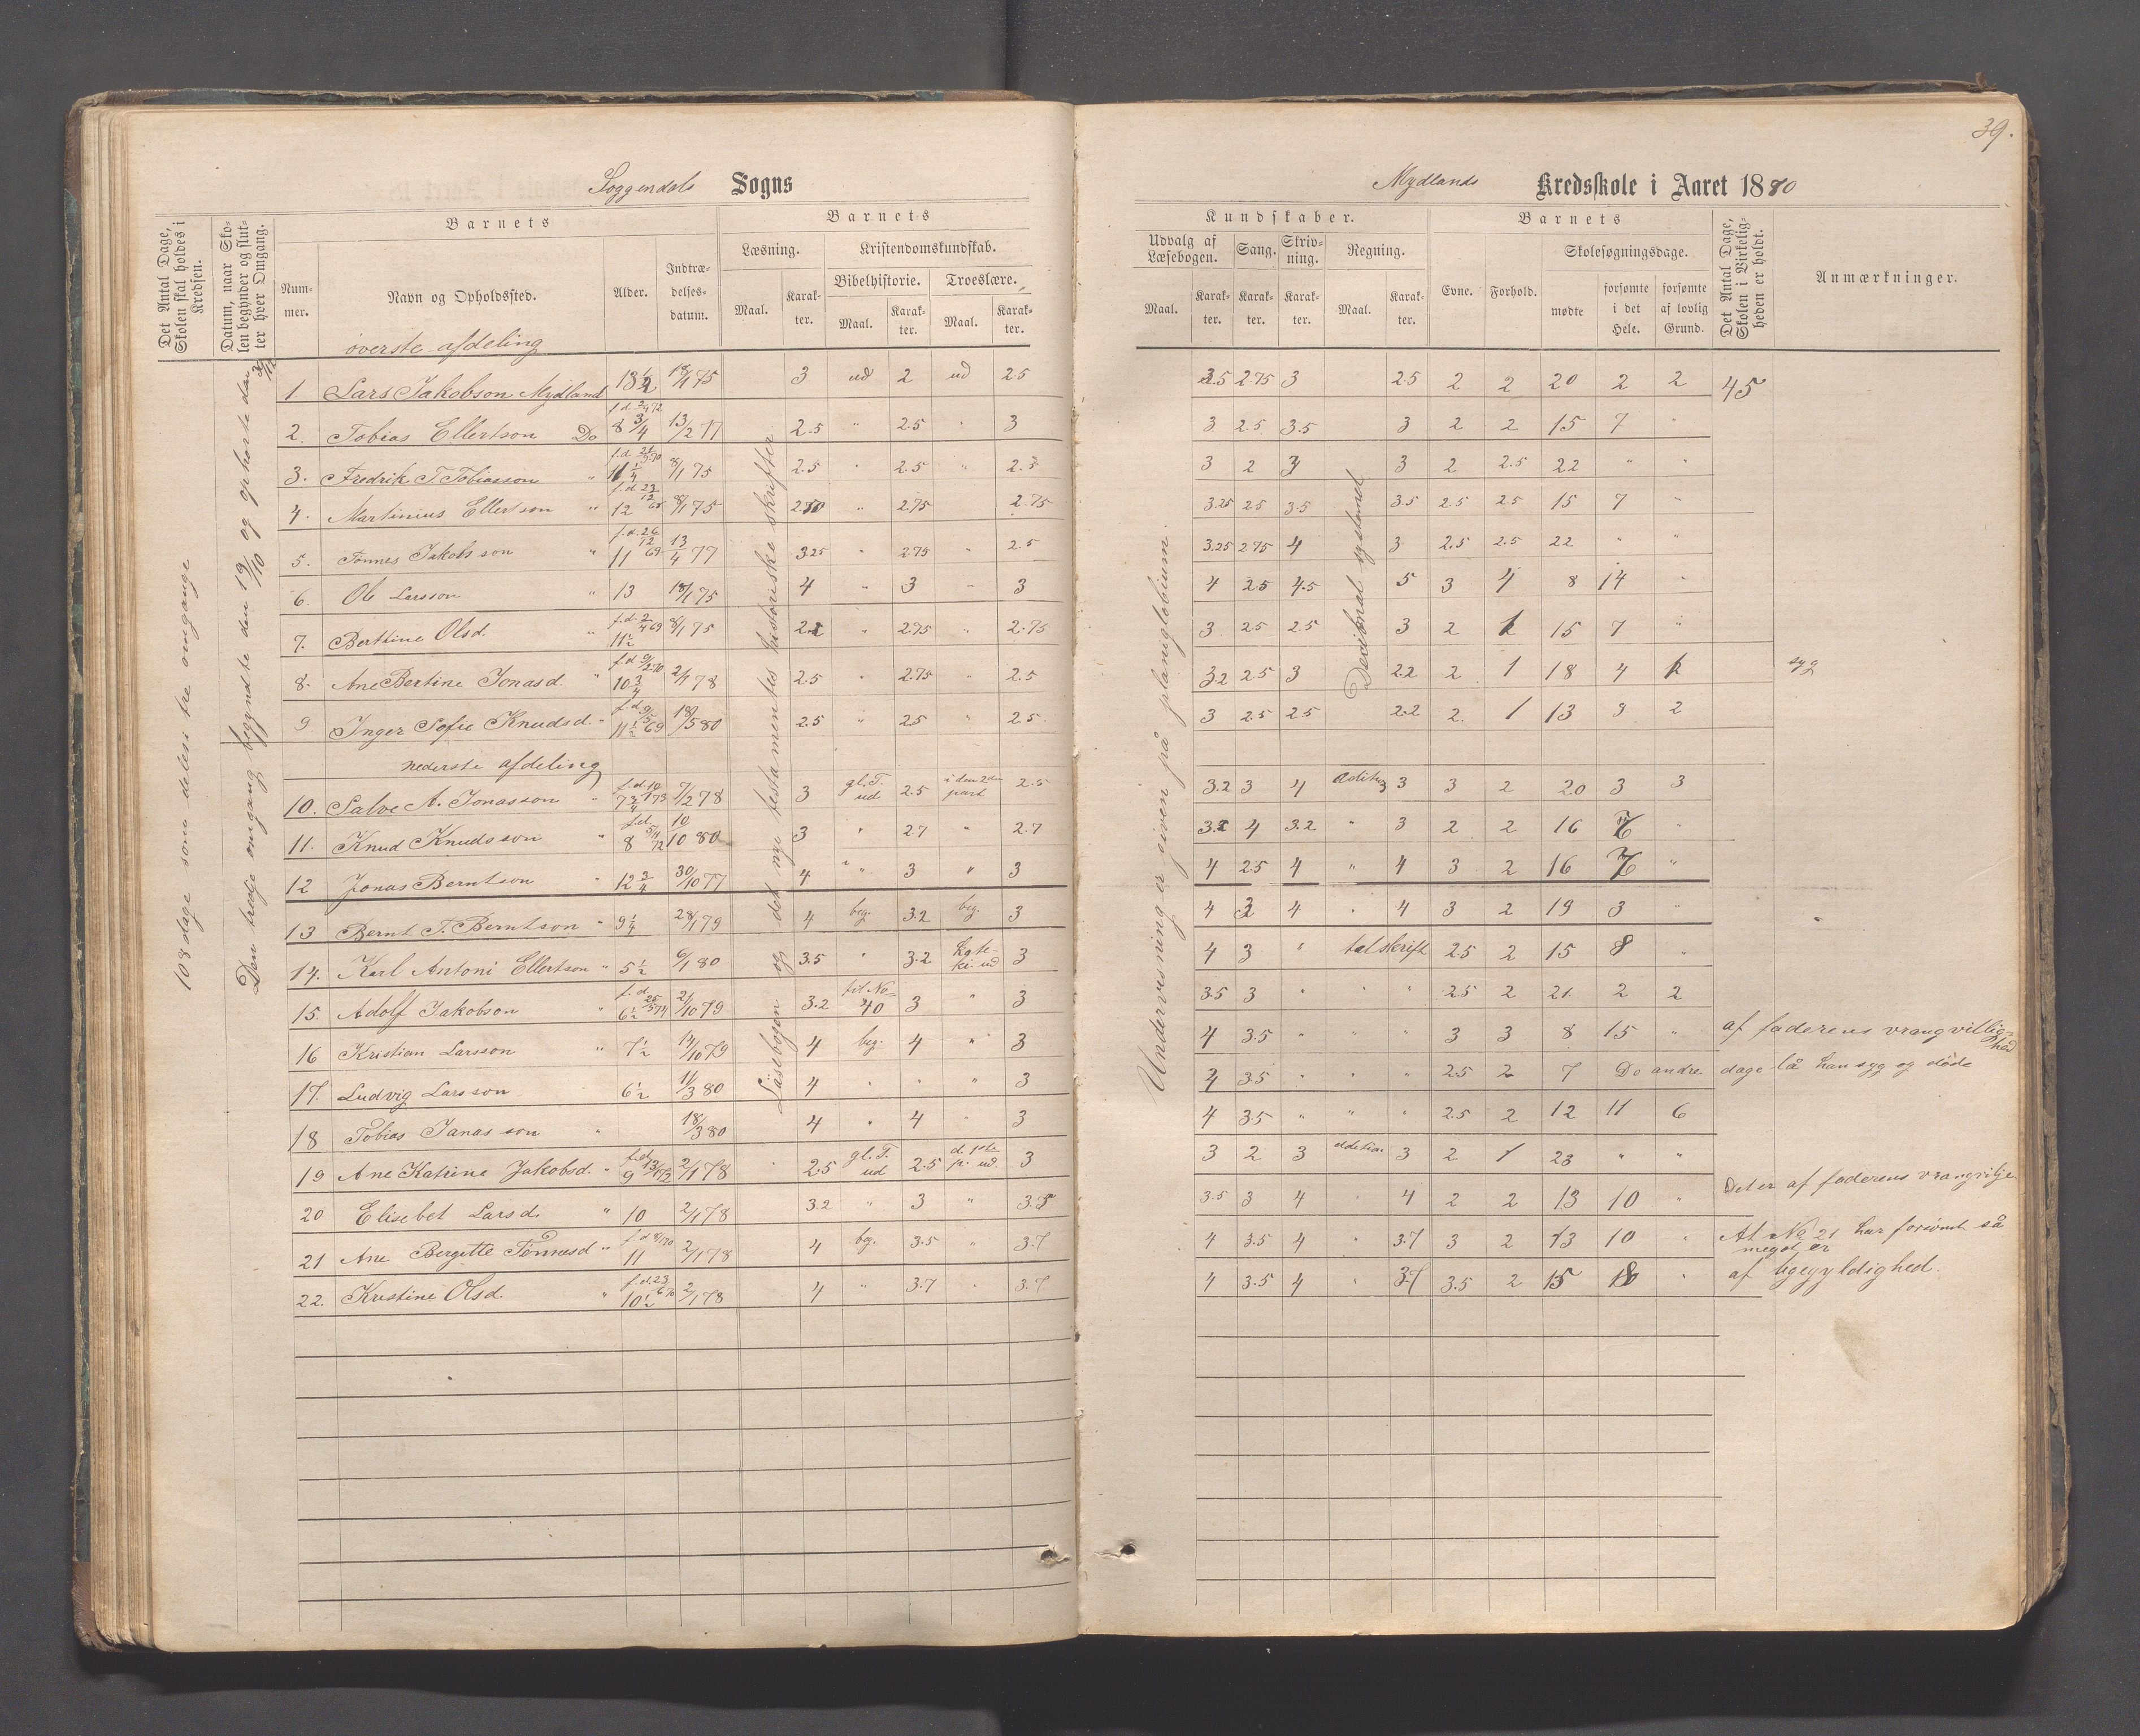 39.
Soggendals Sogns
Mydlands Kredsskole i Aaret 1880
Det Antal Dage, Skolen skal holdes i Kredsen.
Datum, naar Skolen begynder og slutter hver Omgang.
Barnets
Nummer.
Navn og Opholdssted.
Alder.
Indtrædelsesdatum.
Barnets
Læsning.
Kristendomskundskab.
Bibelhistorie.
Troeslære.
Maal.
Karakter.
Maal.
Karakter.
Maal.
Karakter.
Kundskaber.
Udvalg af Læsebogen.
Sang.
Skrivning.
Regning.
Maal.
Karakter.
Karakter.
Karakter.
Maal.
Karakter.
Barnets
Evne.
Forhold.
Skolesøgningsdage.
mødte
forsømte i det Hele.
forsømte af lovlig Grund.
Det Antal Dage, Skolen i Virkeligheden er holdt.
Anmærkninger.
108 dage som deles i tre omgange
Den tredje omgang begyndte den 19/10 og ophørte den
Læsebogen og det nye testamentes historiske skrifter
Undervisning er given på planiglobium.
Decimal systemet
øverste afdeling
1 Lars Jakobson Mydland 13 1/2 18/1 75 3 ud 2 ud 2.5 3.5 2.75 3 2.5 2 2 20 2 2 45
2. Tobias Ellertson Do 8 3/4 13/2 77 2.5 " 2.5 " 3 3 2.5 3.5 3 2 2 15 7 "
3. Fredrik T. Tobiasson " 11 1/4 8/1 75 2.5 " 2.5 " 2.5 3 2 3 3 2 2.5 22 " "
4. Martinius Ellertson " 12 8/1 75 " 2.75 2.75 3.25 2.5 3.5 3.5 2.5 2.5 15 7 "
5. Tønnes Jakobsson " 11 13/4 77 3.25 " 2.75 " 2.5 3.25 2.75 4 3 2.5 2.5 22 " "
6. Ole Larsson " 13 18/1 75 4 " 3 " 3 4 2.5 4.5 5 3 4 8 14 "
7. Berthine Olsd. " 11 1/2 8/1 75 " 2.75 " 2.75 3 2.5 2.5 3 2 15 7 "
8. Ane Bertine Jonasd. " 10 3/4 2/1 78 2.5 " 2.75 " 2.5 3.2 2.5 3 2.2 2 1 18 4 syg
9 Inger Sofie Knudsd. " 11 1/2 18/5 80 2.5 " 2.5 " 2.5 3 2.5 2.5 2.2 2. 1 13 3 2
nederste afdeling
10. Salve A. Jonasson " 7 3/4 7/2 78 3 gl. T. ud 2.5 i den 2den part 2.5 3.2 3 4 3 3 2 20 3 3
11. Knud Knudsson " 8 10/10 80 3 " 2.7 " 2.7 4 3.2 " 3 2 2 16 "
12 Jonas Berntson " 12 3/4 30/10 77 4 " 3 " 3 4 2.5 4 " 4 3 2 16 "
13 Bernt T. Berntson " 9 1/4 28/1 79 4 beg. 3.2 beg. 3 4 3 4 " 4 3 2 19 3 "
14. Karl Antoni Ellertson " 5 1/2 6/1 80 3.5 " 3.2 ud 3 4 3 " talskrift 2.5 2 15 8 "
15. Adolf Jakobson " 6 1/2 21/10 79 3.2 til No 40 3 " 3 3.5 3 " " " 2.5 2 21. 2 2
16 Kristian Larsson " 7 1/2 14/10 79 4 beg. 4 " 3 4 3.5 " " " 3 3 8 15 " af faderens vrangvillighed
17. Ludvig Larsson 6 1/2 11/3 80 4 " " " 3 4 3.5 " " " 2.5 2 7 De andre dage lå han syg og døde
18 Tobias Janasson " 18/3 80 4 " 4 " 3 4 3.5 " " " 2.5 2 12 11 6
19 Ane Katrine Jakobsd. " 9 2/1 78 2.5 gl. T. ud 2.5 ud 3 3 2 3 3 2 1 23 " "
20 Elisebet Larsd. " 10 2/1 78 3.2 " 3 " 3.5 3 4 " 4 2 2 13 10 " Det er af faderens vrangvilje
21 Ane Bergitte Tønnesd " 11 2/1 78 4 beg. 3.5 " 3.7 4 3.5 4 " 3.7 3 2 13 10 " At No 21 har forsømt så meget, er
22. Kristine Olsd. " 10 1/2 2/1 78 4 " 3.7 " 3.7 4 3.5 4 " 3.7 3.5 2 15 " af ligegyldighed.